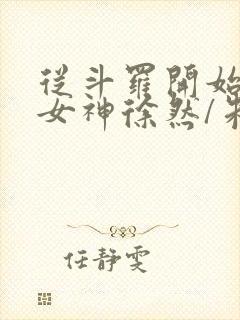 從斗羅開始
女神徐然/朱
任靜雯